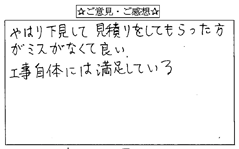 ☆ご意見・ご感想☆
やはり下見して見積りをしてもらった方
がミスがなくて良い.
工事自体には満足している